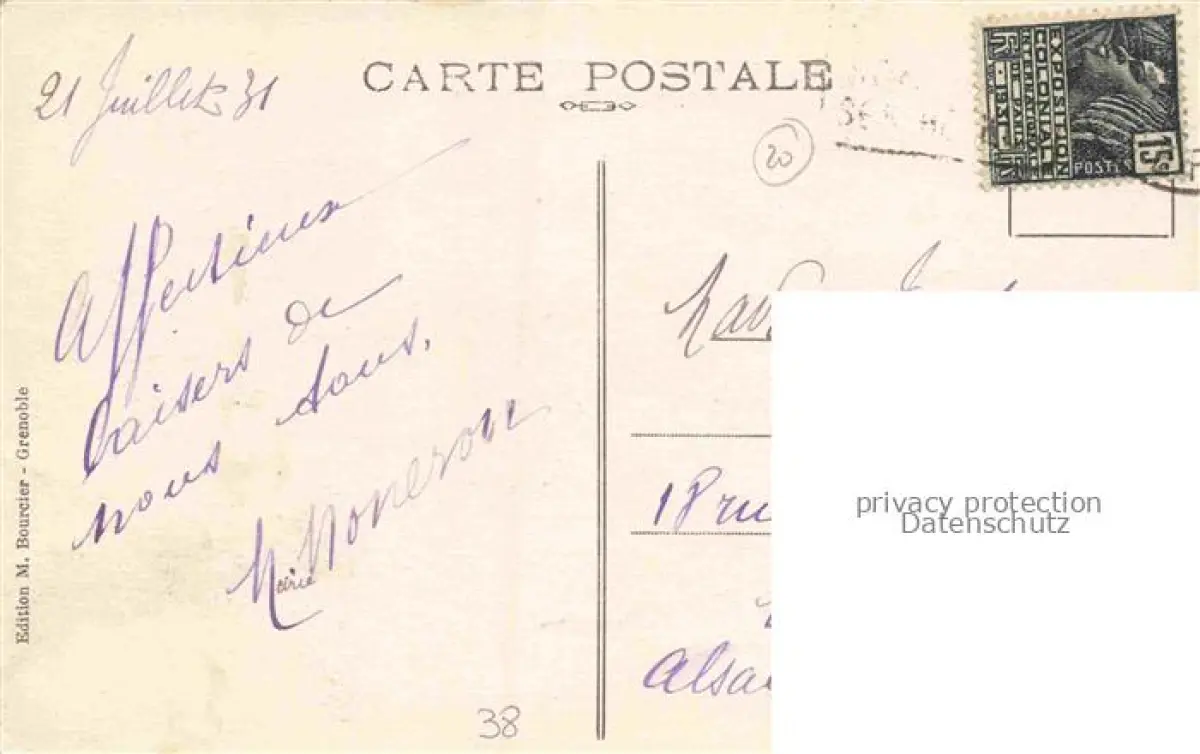 21 Juillet 31
CARTE POSTALE
EXPOSITION
COLONIALE
INTERNATIONALE
DE PARIS
1931
POSTES
15c
20
Affectueux
baisers de
nous tous.
Marie
Edition M. Bourcier - Grenoble
38
18 ru
Alsa
privacy protection
Datenschutz